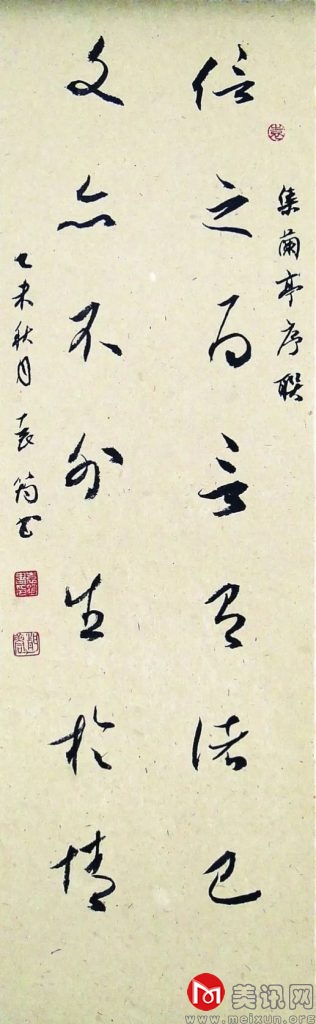 集蘭亭序聯
信之为言有诸己
文亦不外生於情
乙未秋月 袁筠书
美讯网
www.meixun.org